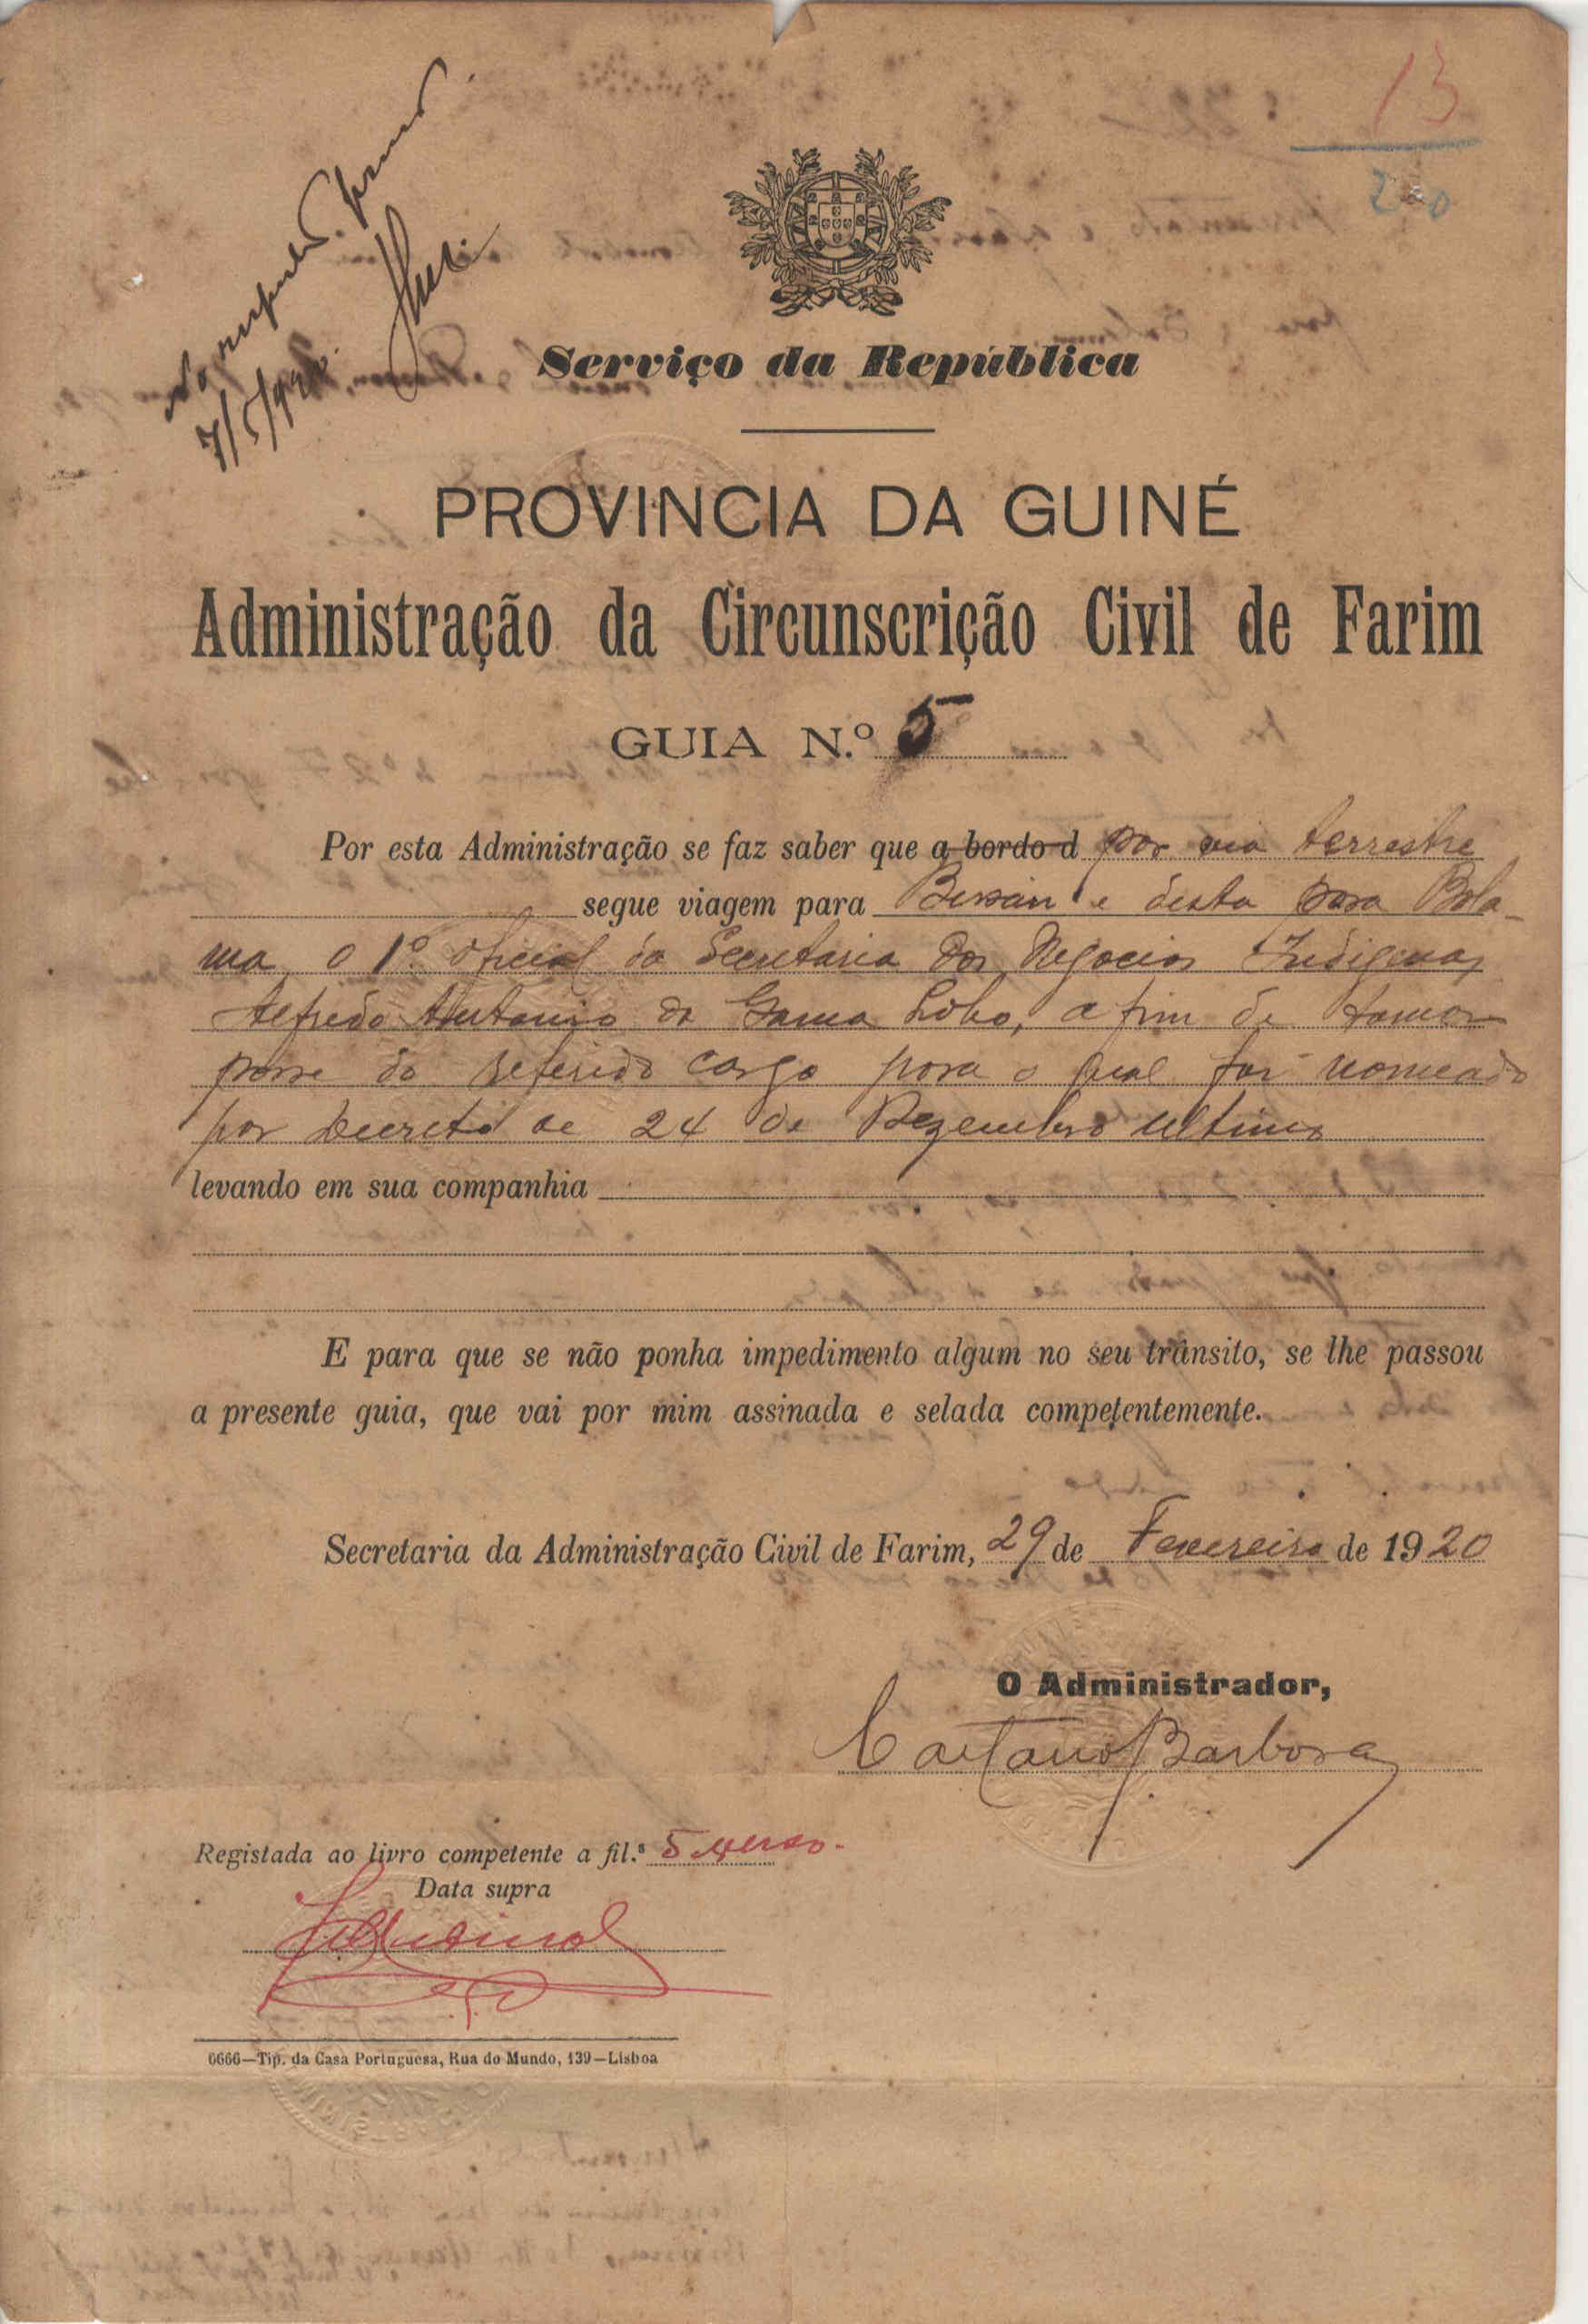 13
220
7/5/920.
Serviço da República
PROVINCIA DA GUINÉ
Administração da Circunscrição Civil de Farim
GUIA N.º 5
Por esta Administração se faz saber que a bordo d por via terrestre
segue viagem para Bissau e desta para Bola-
ma, o 1º oficial da Secretaria dos Negocios Indigenas
Alfredo Antonio da Gama Lobo, a fim de tomar
posse do referido cargo para o qual foi nomeado
por Decreto de 24 de Dezembro ultimo
levando em sua companhia
E para que se não ponha impedimento algum no seu trânsito, se lhe passou
a presente guia, que vai por mim assinada e selada competentemente.
Secretaria da Administração Civil de Farim, 29 de Fevereiro de 1920
O Administrador,
Caetano Barbosa
Registada ao livro competente a fil.s 5 verso.
Data supra
6666—Tip. da Casa Portuguesa, Rua do Mundo, 139—Lisboa